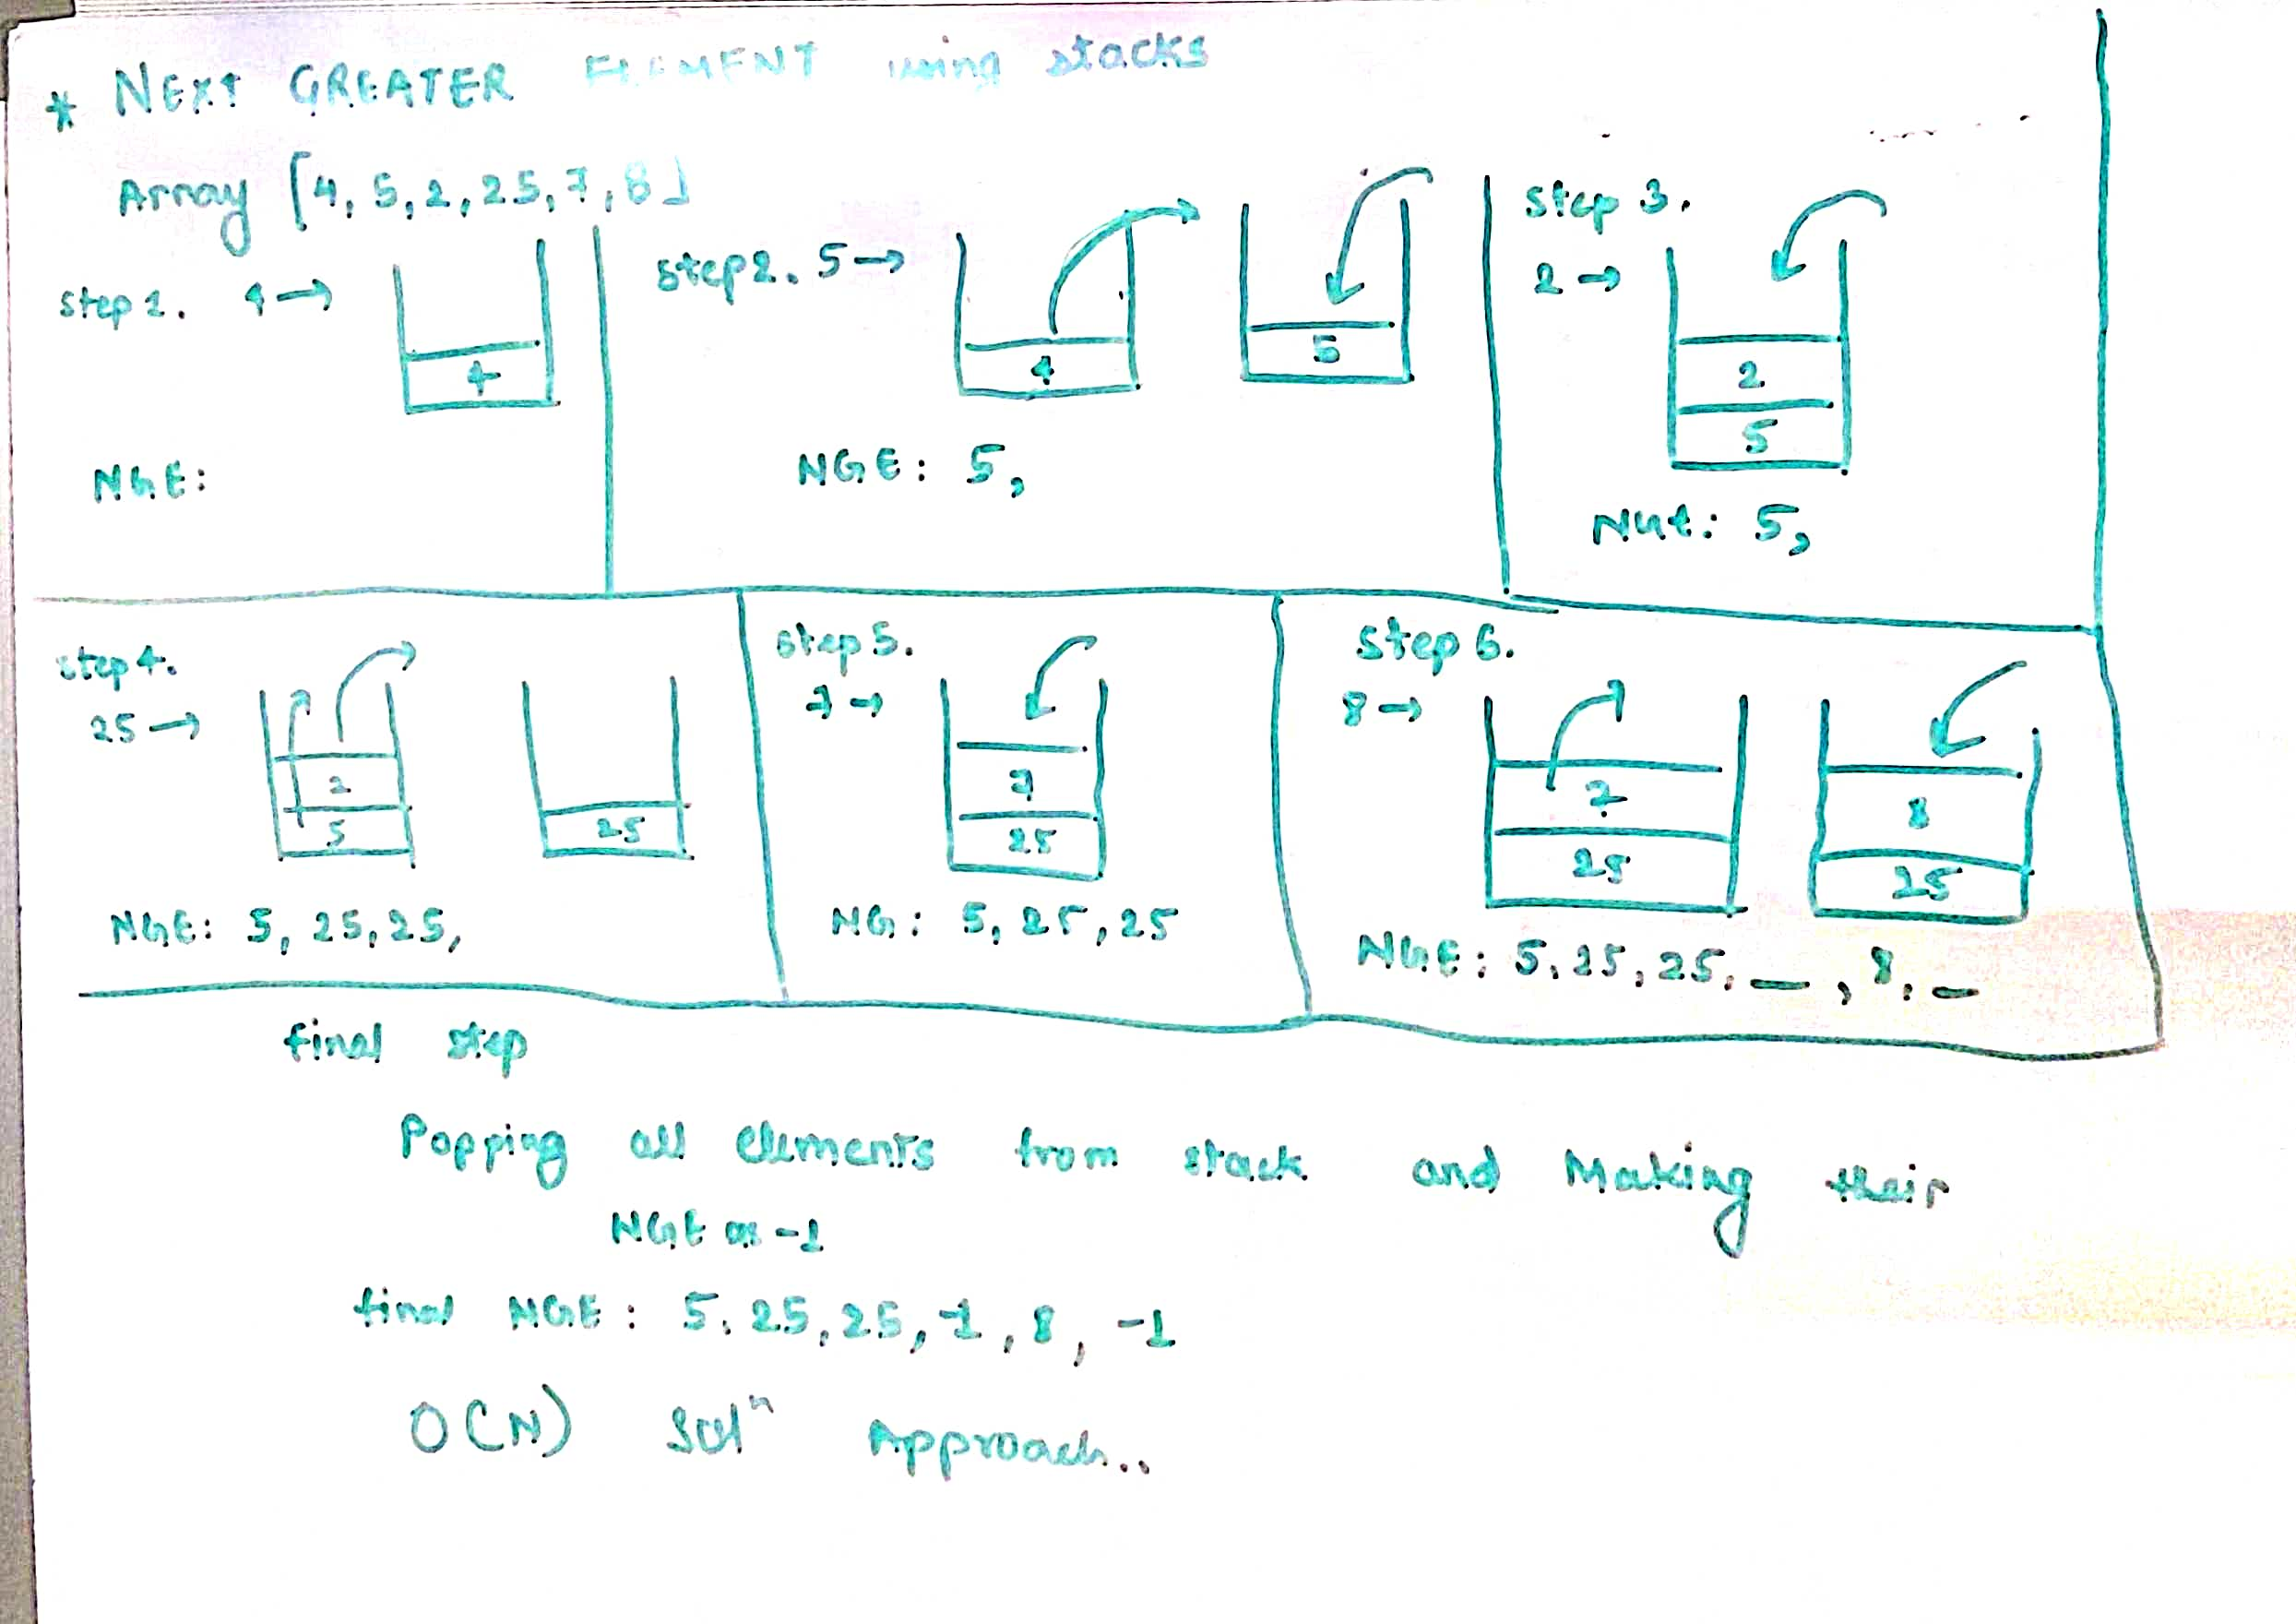 * NEXT GREATER ELEMENT using stacks
Array [4, 5, 2, 25, 7, 8]
Step 1. 4→
4
NGE:
Step 2. 5→
4
5
NGE: 5,
Step 3.
2→
2
5
NGE: 5,
Step 4.
25→
2
5
25
NGE: 5, 25, 25,
Step 5.
7→
7
25
NG: 5, 25, 25
Step 6.
8→
7
25
8
25
NGE: 5, 25, 25, _, 8, _
final step
Popping all elements from stack and Making their
NGE as -1
final NGE: 5, 25, 25, -1, 8, -1
O(N) Solⁿ Approach..